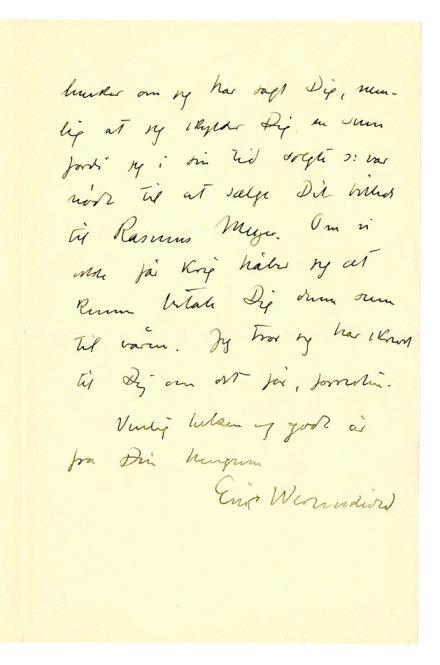 husker om jeg har sagt Dig, nem-
lig at jeg skylder Dig en sum
fordi jeg i sin tid solgte ɔ: var
nødt til at sælge Dit billed
til Rasmus Meyer. Om vi
ikke får Krig håber jeg at
kunne betale Dig denne sum
til våren. Jeg tror jeg har skrevet
til Dig om det før, forresten.
Venlig hilsen og godt år
fra Din hengivne
Erik Werenskiold